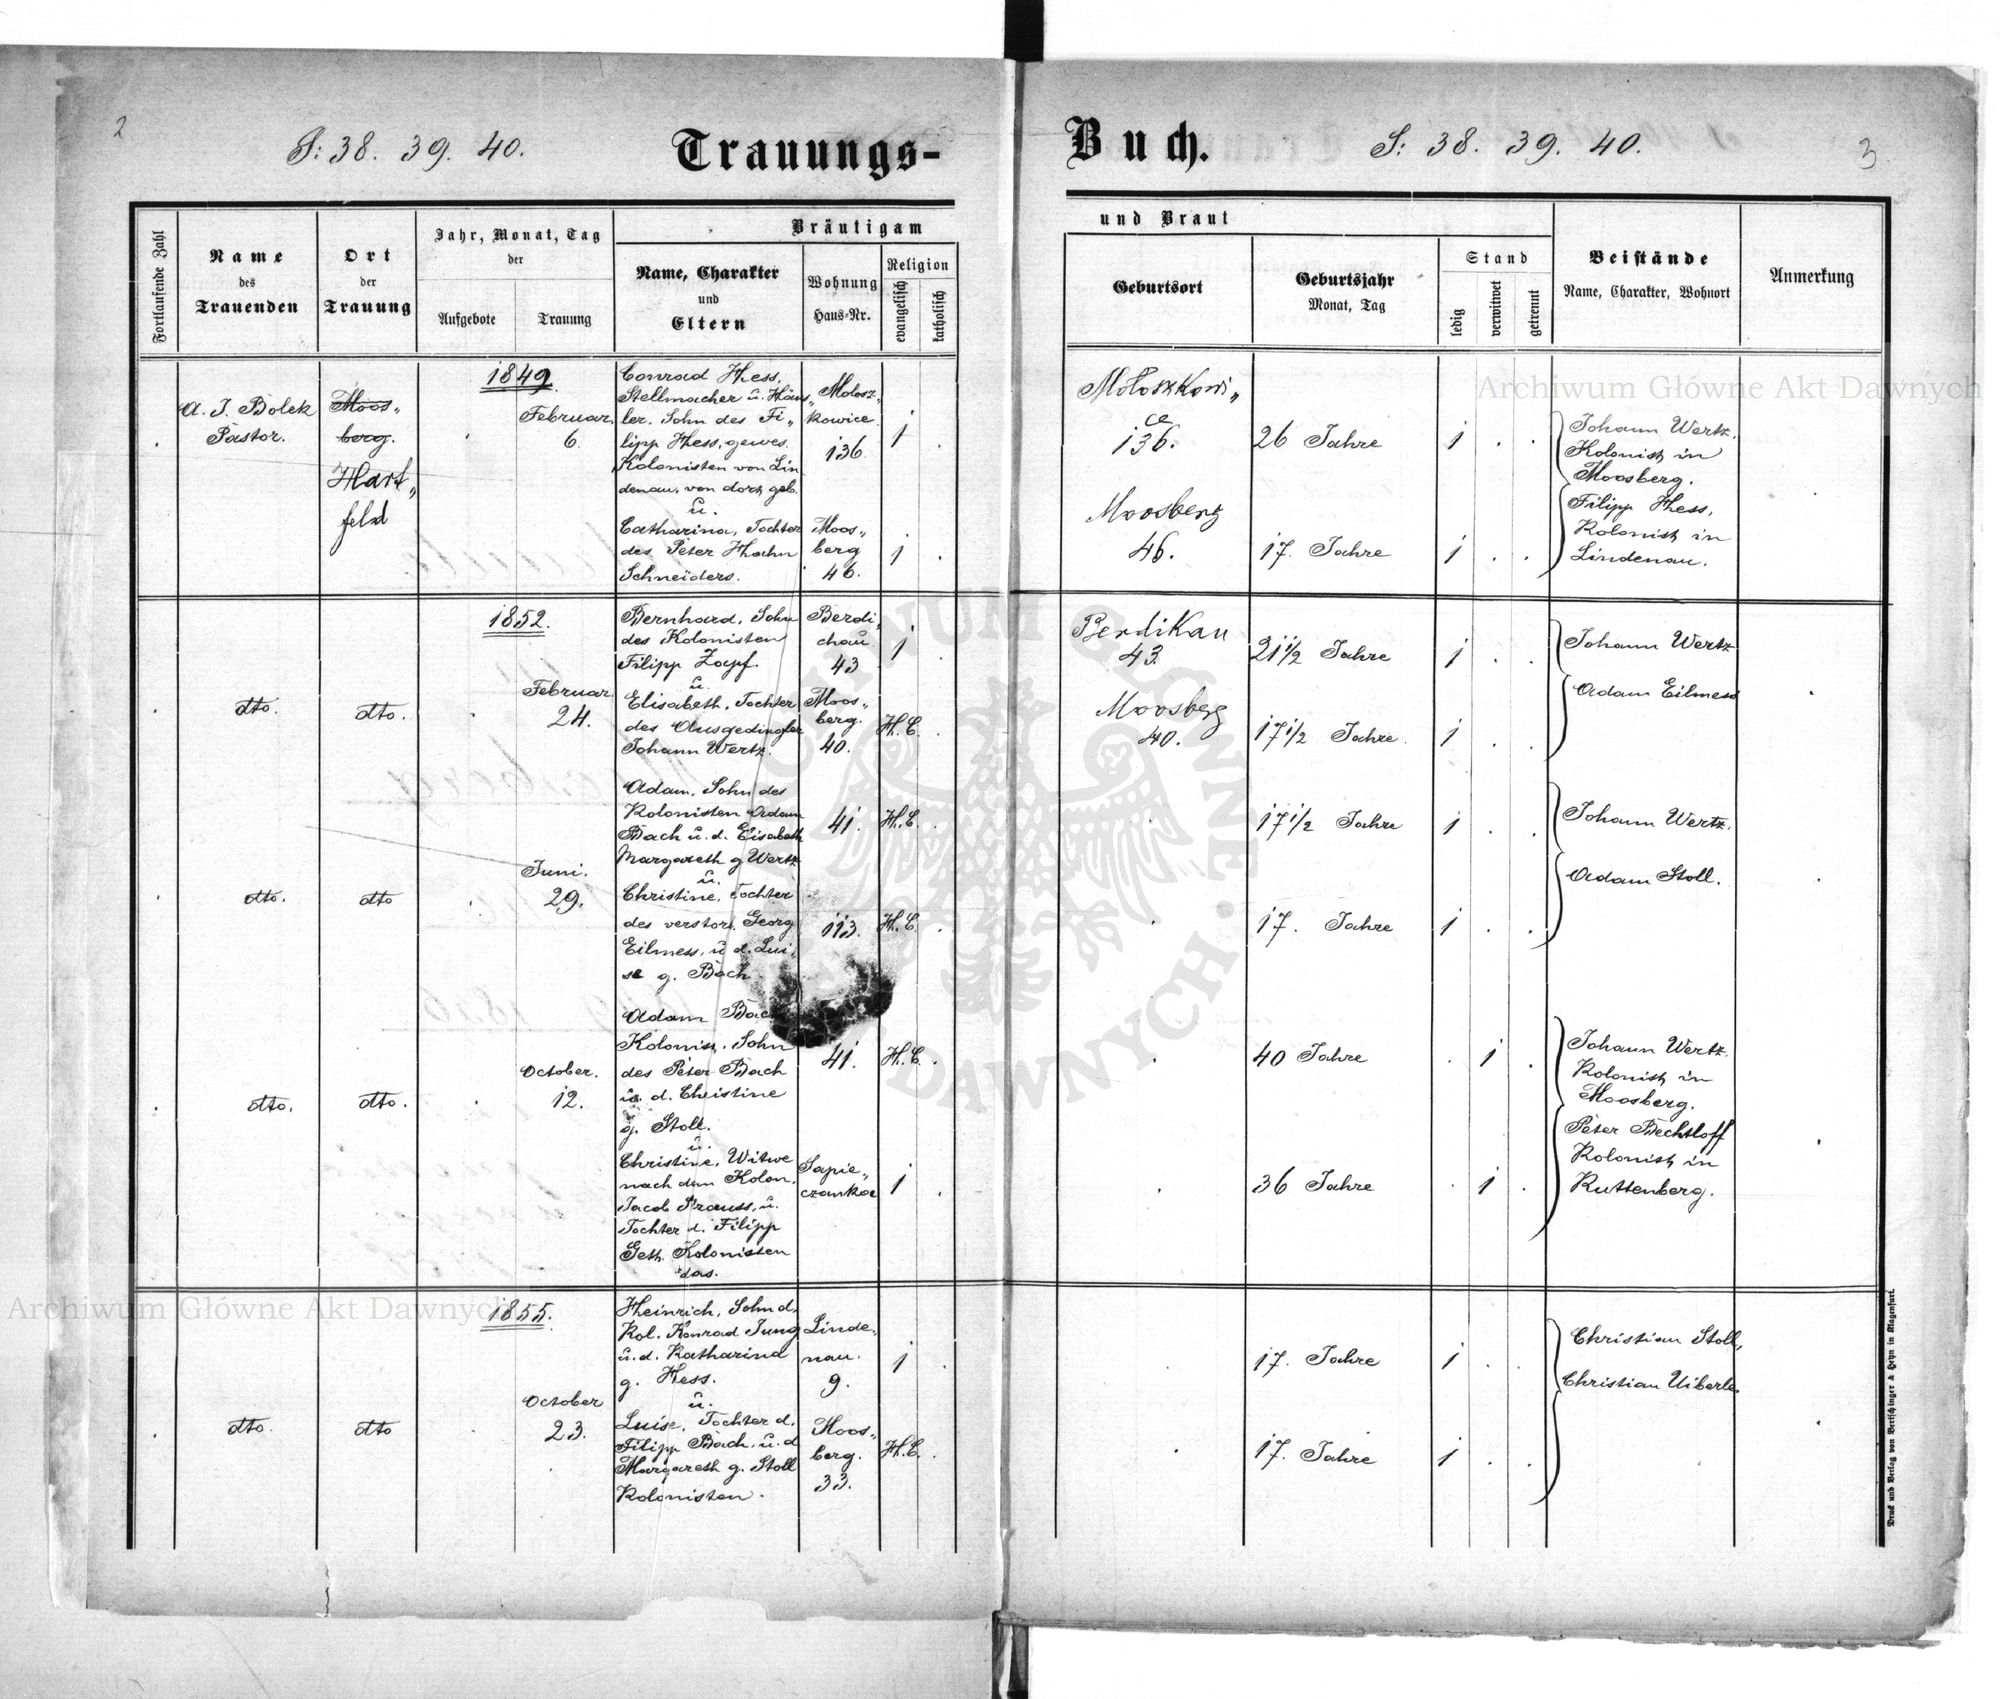 2
S: 38. 39. 40.
Trauungs-
Fortlaufende Zahl
Name
des
Trauenden
Ort
der
Trauung
Jahr, Monat, Tag
der
Aufgebote
Trauung
Bräutigam
Name, Charakter
und
Eltern
Wohnung
Haus-Nr.
Religion
evangelisch
katholisch
A. J. Bolek
Pastor.
Moos„
berg.
Hart„
feld
1849.
Februar
6.
Conrad Hess,
Stellmacher u. Häus„
ler, Sohn des Fi„
lipp Hess, gewes.
Kolonisten von Lin
denau, von dort geb.
u.
Catharina, Tochter
des Peter Hahn
Schneiders.
Molosz„
kowice
136.
1
Moos„
berg
46.
1
1852.
dto.
dto.
Februar
24.
Bernhard, Sohn
des Kolonisten
Filipp Zapf.
u.
Elisabeth, Tochter
des Ausgedingler
Johann Wertz.
Berdi„
chau
43
1
Moos„
berg.
40.
H.C.
dto.
dto
Juni.
29.
Adam, Sohn des
Kolonisten Adam
Bach u. d. Elisabeth
Margareth g Wertz
u.
Christine, Tochter
des verstorb. Georg
Eilmess, u d. Lui„
se g. Bach
41.
H.C.
113.
H.C.
dto.
dto.
October.
12.
Adam Bach
Kolonist, Sohn
des Peter Bach
u. d. Christine
g. Stoll.
u.
Christine, Witwe
nach dem Kolon.
Jacob Prauss, u.
Tochter d. Filipp
Geth. Kolonisten
das.
41.
H.C.
Sapie„
czanka
1
1855.
dto.
dto
October
23.
Heinrich, Sohn d.
Kol. Konrad Jung
u. d. Katharina
g. Hess.
u.
Luise, Tochter d.
Filipp Bach, u. d
Margareth g. Stoll
Kolonisten.
Linde„
nau.
9.
1
Moos„
berg.
33.
H.C.
Buch.
S: 38. 39. 40.
3
und Braut
Geburtsort
Geburtsjahr
Monat, Tag
Stand
ledig
verwitwet
getrennt
Beistände
Name, Charakter, Wohnort
Anmerkung
Mołoszkowi„
ce
136.
26 Jahre
1
Johann Wertz,
Kolonist in
Moosberg.
Moosberg
46.
17. Jahre
1
Filipp Hess,
Kolonist in
Lindenau.
Berdikau
43.
21 1/2 Jahre
1
Johann Wertz
Moosberg
40.
17 1/2 Jahre.
1
Adam Eilmess
17 1/2 Jahre
1
Johann Wertz.
17. Jahre
1
Adam Stoll.
40 Jahre
1
Johann Wertz.
Kolonist in
Moosberg.
36 Jahre
1
Peter Bechtloff
Kolonist in
Ruttenberg.
17. Jahre
1
Christian Stoll,
17. Jahre
1
Christian Uiberle.
Druck und Verlag von Bertschinger & Heyn in Klagenfurt.
Archiwum Główne Akt Dawnych
Archiwum Główne Akt Dawnych
ARCHIWUM GŁÓWNE · AKT DAWNYCH ·